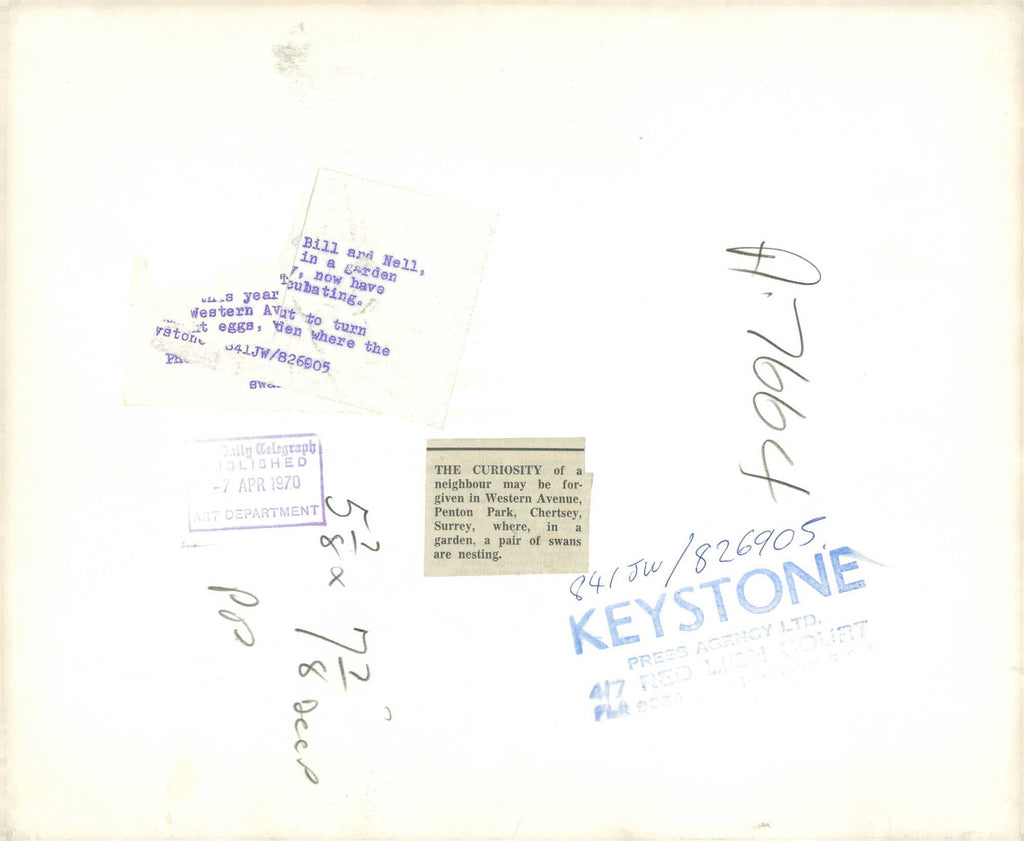 Bill and Nell,
in a garden
, now have
cubating.
this year
Western Av
ut to turn
t eggs,
den where the
ystone
841JW/826905
swa
Daily Telegraph
PUBLISHED
-7 APR 1970
ART DEPARTMENT
THE CURIOSITY of a
neighbour may be for-
given in Western Avenue,
Penton Park, Chertsey,
Surrey, where, in a
garden, a pair of swans
are nesting.
A.7664
841JW/826905.
KEYSTONE
PRESS AGENCY LTD.
4/7 RED LION COURT
5 7/8 x 7 7/8 Deep